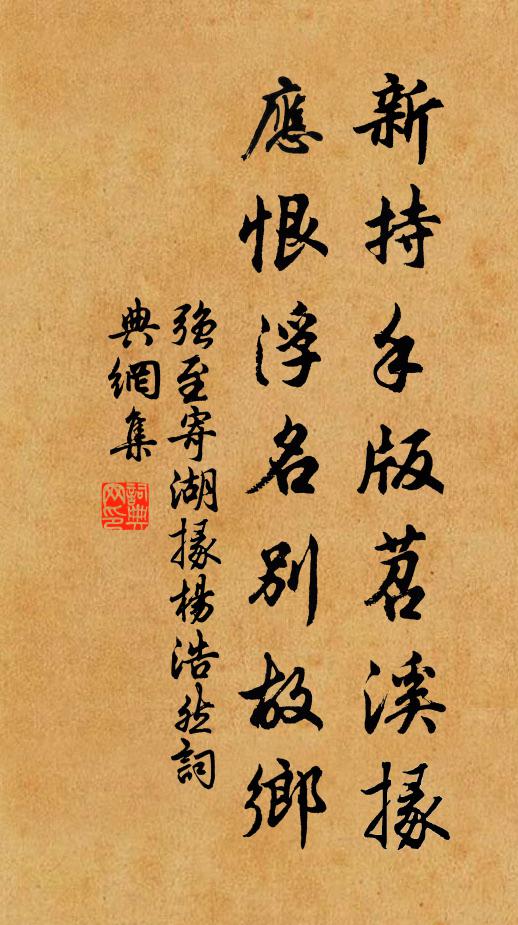 新持手版苕溪掾
應恨浮名別故鄉
強至寄湖掾楊浩然詞
典網集
詞典網印